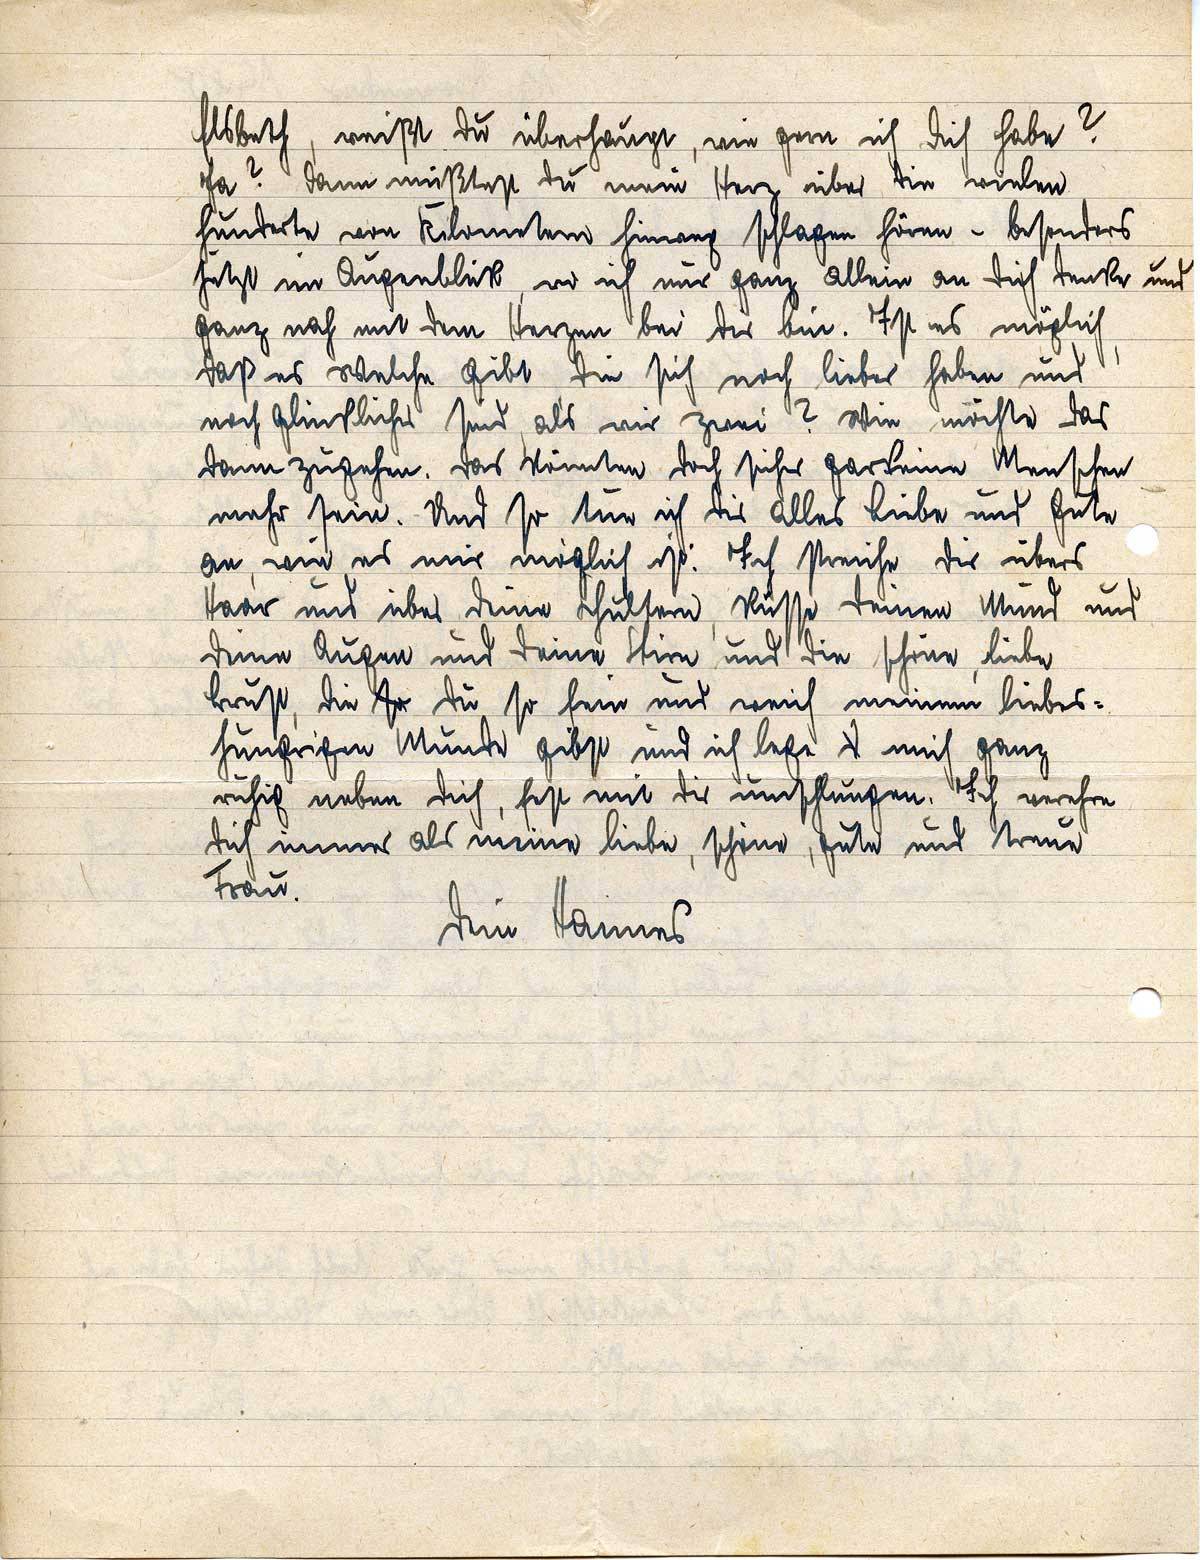 Elsbeth, weißt Du überhaupt, wie gern ich Dich habe?
Ja? Dann müßtest Du mein Herz über die vielen
hunderte von Kilometern hinweg schlagen hören - besonders
jetzt im Augenblick, wo ich nur ganz allein an Dich denke und
ganz nah mit dem Herzen bei Dir bin. Ist es möglich,
daß es Welche gibt die sich noch lieber haben und
noch glücklicher sind, als wir zwei? Wie möchte das
dann zugehen. Das könnten doch sicher garkeine Menschen
mehr sein. Und so tue ich Dir alles Liebe und Gute
an, wie es mir möglich ist: Ich streiche Dir übers
Haar und über Deine Schultern, küsse Deinen Mund und
Deine Augen und Deine Stirn und die schöne, liebe
Brust, die so Du so fein und weich meinem liebes-
hungrigen Munde gibst und ich lege mich ganz
ruhig neben Dich, fest mit Dir umschlungen. Ich verehre
Dich immer als meine liebe, schöne, gute und treue
Frau.
Dein Hannes